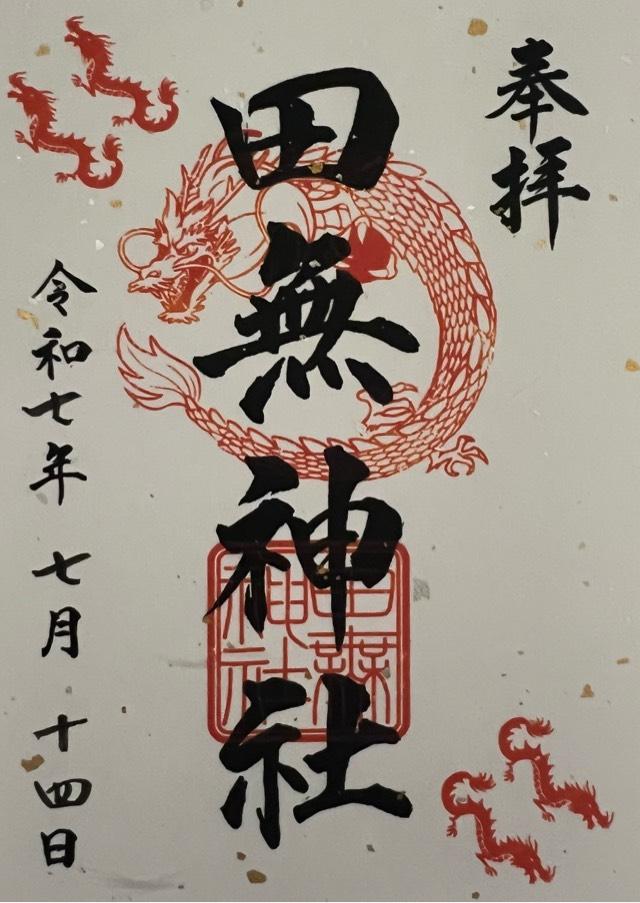 奉拝
田無神社
令和七年 七月 十四日
田無神社